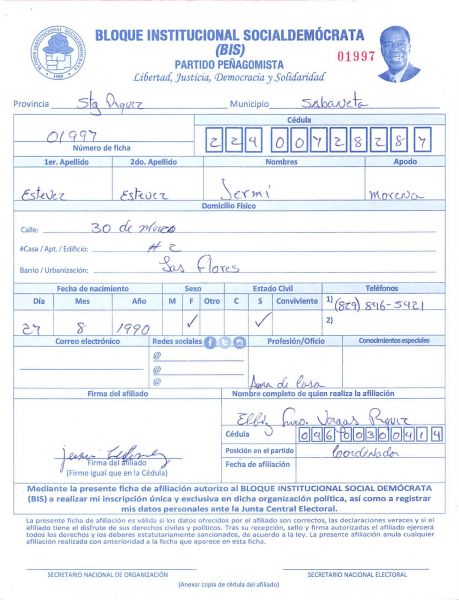 BLOQUE INSTITUCIONAL SOCIALDEMÓCRATA
(BIS)
PARTIDO PEÑAGOMISTA
Libertad, Justicia, Democracia y Solidaridad
BLOQUE INSTITUCIONAL SOCIALDEMOCRATA
01997
Provincia Stg Rguez Municipio Sabaneta
01997
Número de ficha
Cédula
224 0072828 7
1er. Apellido 2do. Apellido Nombres Apodo
Estevez Estevez Jermi Morena
Domicilio Físico
Calle: 30 de marzo
#Casa / Apt. / Edificio: # 2
Barrio / Urbanización: Las Flores
Fecha de nacimiento Sexo Estado Civil Teléfonos
Día Mes Año M F Otro C S Conviviente 1) (829) 846-5421
27 8 1990 ✓ ✓ 2)
Correo electrónico Redes sociales Profesión/Oficio Conocimientos especiales
@
@
@
Ama de Casa
Firma del afiliado Nombre completo de quien realiza la afiliación
Vargas Rguez
Cédula 046 0030041 4
Firma del afiliado
(Firme igual que en la Cédula)
Posición en el partido Coordinador
Fecha de afiliación
Mediante la presente ficha de afiliación autorizo al BLOQUE INSTITUCIONAL SOCIAL DEMÓCRATA
(BIS) a realizar mi inscripción única y exclusiva en dicha organización política, así como a registrar
mis datos personales ante la Junta Central Electoral.
La presente ficha de afiliación es válida si los datos ofrecidos por el afiliado son correctos, las declaraciones veraces y si el
afiliado tiene el disfrute de sus derechos civiles y políticos. Tras su recepción, sello y firma autorizada el afiliado ejercerá
todos los derechos y los deberes estatutariamente sancionados, de acuerdo a la ley. La presente afiliación anula cualquier
afiliación realizada con anterioridad a la fecha que aparece en esta ficha.
SECRETARIO NACIONAL DE ORGANIZACIÓN SECRETARIO NACIONAL ELECTORAL
(Anexar copia de cédula del afiliado)